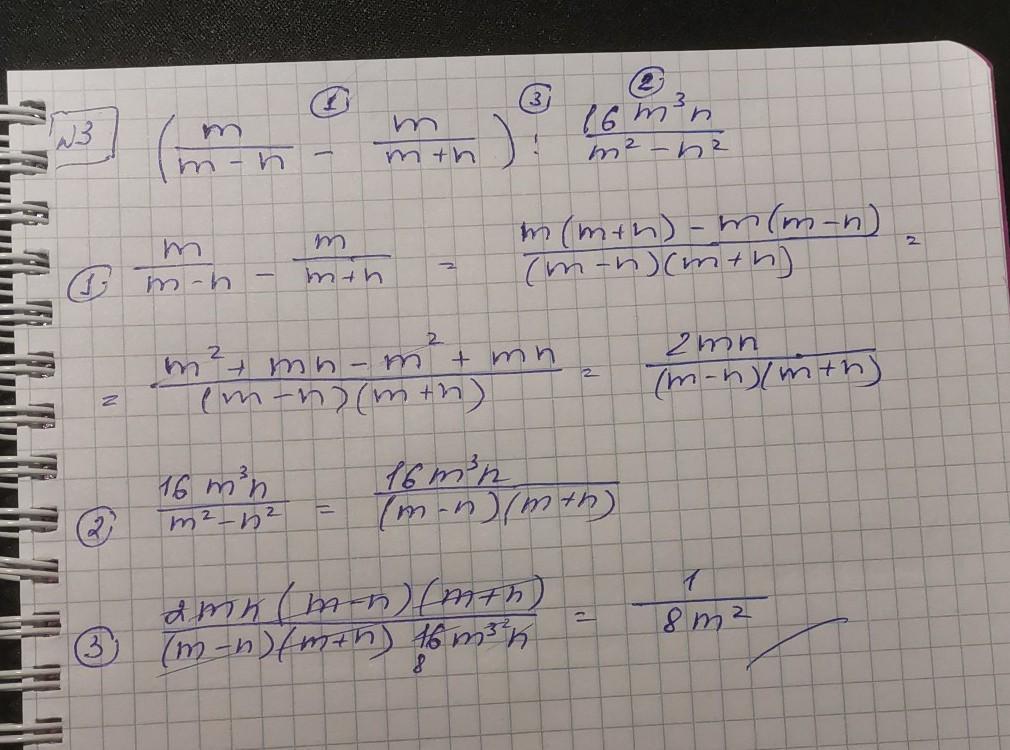 ① ③ ②
№3 (m/(m-n) - m/(m+n)) : 16m³n/(m²-n²)
① m/(m-n) - m/(m+n) = (m(m+n) - m(m-n))/((m-n)(m+n)) =
= (m² + mn - m² + mn)/((m-n)(m+n)) = 2mn/((m-n)(m+n))
② 16m³n/(m²-n²) = 16m³n/((m-n)(m+n))
③ 2mn(m-n)(m+n)/((m-n)(m+n) 16m³n) = 1/(8m²)
8 2